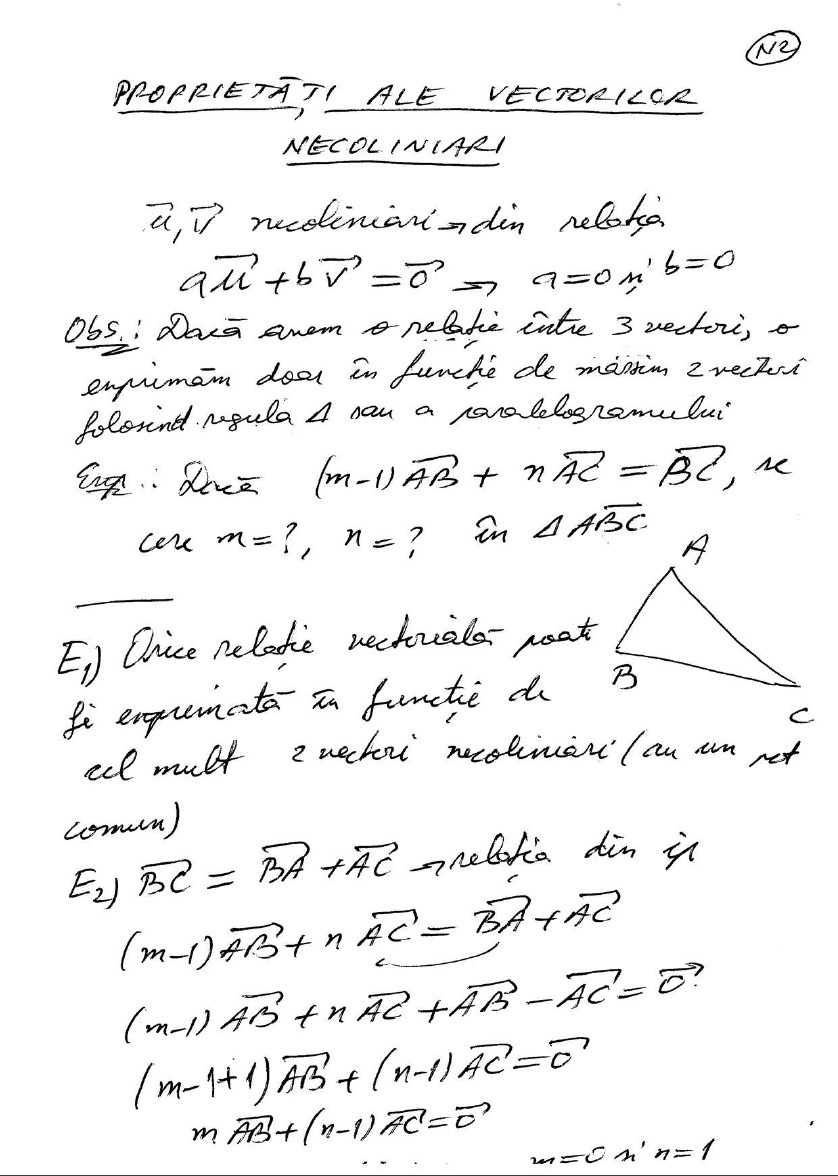 N2
PROPRIETĂȚI ALE VECTORILOR
NECOLINIARI
u⃗, v⃗ necoliniari → din relația
au⃗ + bv⃗ = 0⃗ → a=0 și b=0
Obs.: Dacă avem o relație între 3 vectori, o
exprimăm doar în funcție de maxim 2 vectori
folosind regula Δ sau a paralelogramului
Exp.: Dacă (m-1)AB⃗ + nAC⃗ = BC⃗, se
cere m=?, n=? în ΔABC
A
B
C
E₁) Orice relație vectorială poate
fi exprimată în funcție de
cel mult 2 vectori necoliniari (au un pct
comun)
E₂) BC⃗ = BA⃗ + AC⃗ → relația din ip
(m-1)AB⃗ + nAC⃗ = BA⃗ + AC⃗
(m-1)AB⃗ + nAC⃗ + AB⃗ - AC⃗ = 0⃗
(m-1+1)AB⃗ + (n-1)AC⃗ = 0⃗
mAB⃗ + (n-1)AC⃗ = 0⃗
m=0 și n=1